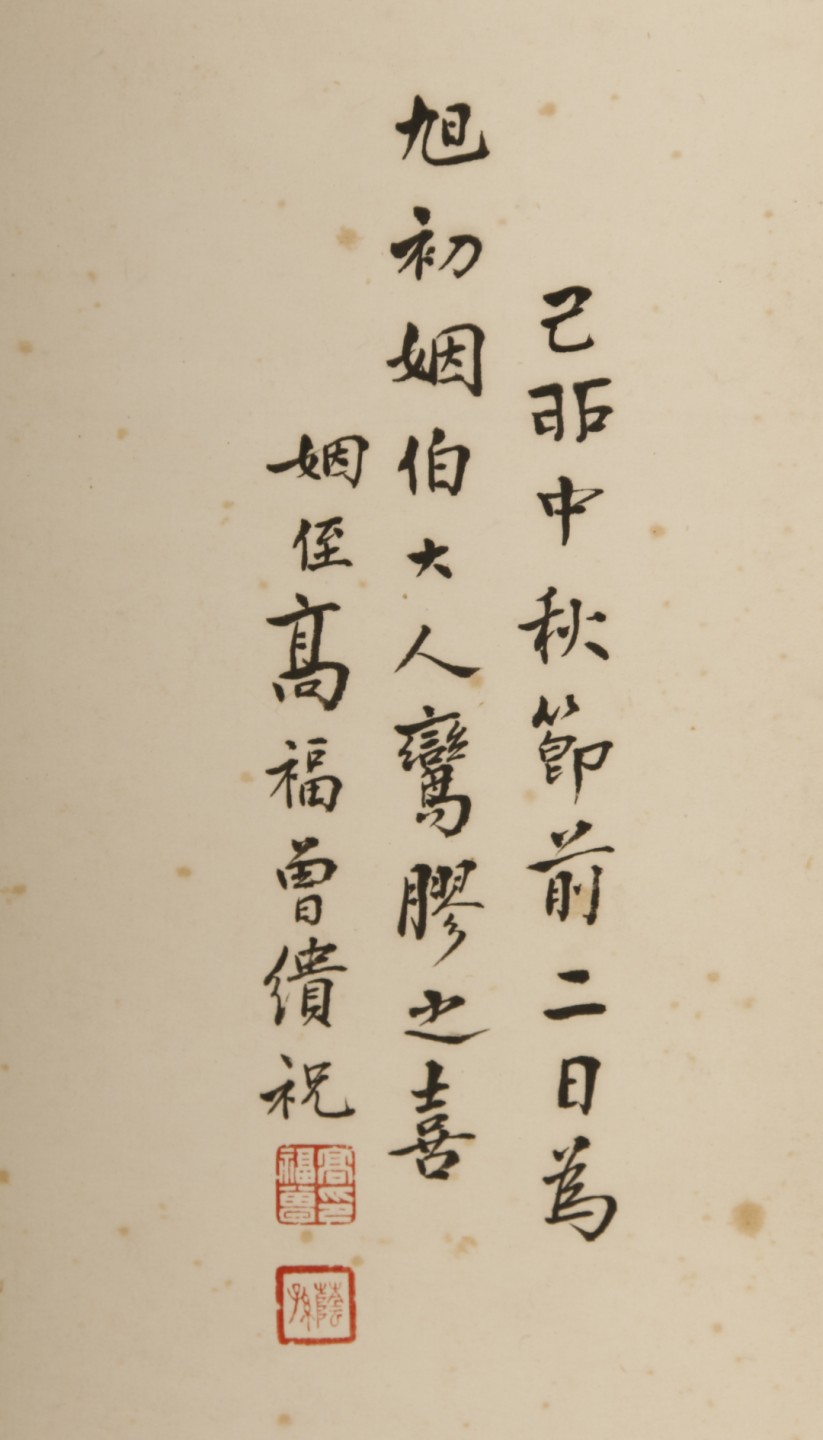 己戼中秋節前二日為
旭初姻伯大人鸞膠之喜
姻侄高福曾繢祝
高印福曾
蔭孫